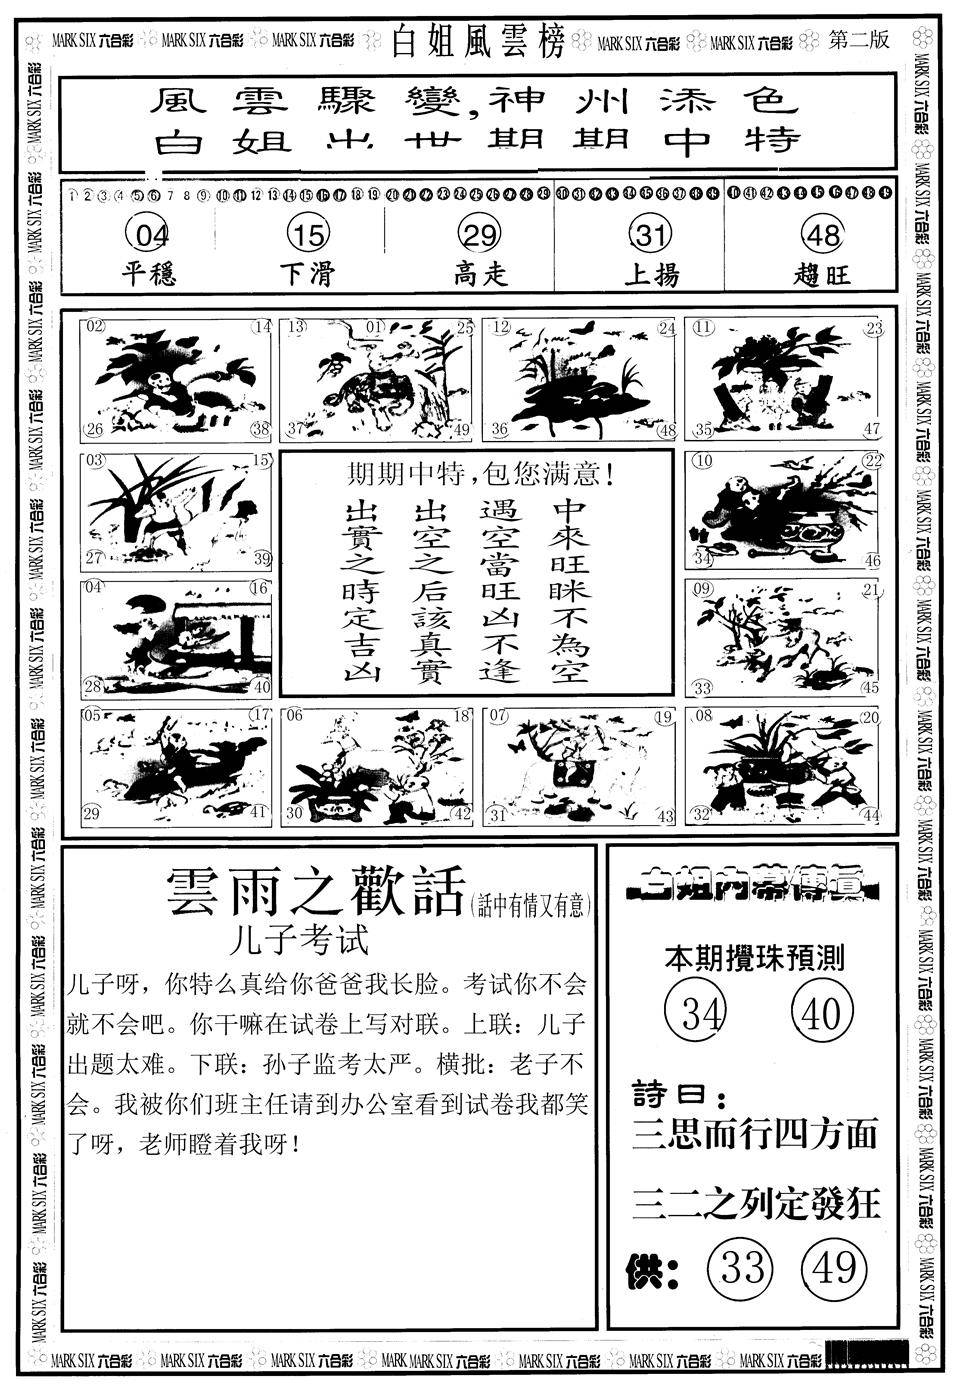 MARK SIX 六合彩 MARK SIX 六合彩 MARK SIX 六合彩 白姐風雲榜 MARK SIX 六合彩 MARK SIX 六合彩 第二版
風雲驟變,神州添色
白姐出世期期中特
1 2 3 4 5 6 7 8 9 10 11 12 13 14 15 16 17 18 19 20 21 22 23 24 25 26 27 28 29 30 31 32 33 34 35 36 37 38 39 40 41 42 43 44 45 46 47 48 49
04 15 29 31 48
平穩 下滑 高走 上揚 趨旺
02 14 13 01 25 12 24 11 23
26 38 37 49 36 48 35 47
03 15
27 39
04 16
28 40
期期中特,包您满意!
中來旺眯不為空
遇空當旺凶不逢
出空之后該真實
出實之時定吉凶
10 22
34 46
09 21
33 45
05 17 06 18 07 19 08 20
29 41 30 42 31 43 32 44
雲雨之歡話(話中有情又有意)
儿子考试
儿子呀，你特么真给你爸爸我长脸。考试你不会
就不会吧。你干嘛在试卷上写对联。上联：儿子
出题太难。下联：孙子监考太严。横批：老子不
会。我被你们班主任请到办公室看到试卷我都笑
了呀，老师瞪着我呀！
白姐内幕傳真
本期攪珠預測
34 40
詩曰：
三思而行四方面
三二之列定發狂
供： 33 49
MARK SIX 六合彩 MARK SIX 六合彩 MARK SIX 六合彩 MARK MARK SIX 六合彩 MARK SIX 六合彩 MARK SIX 六合彩 MARK SIX 六合彩